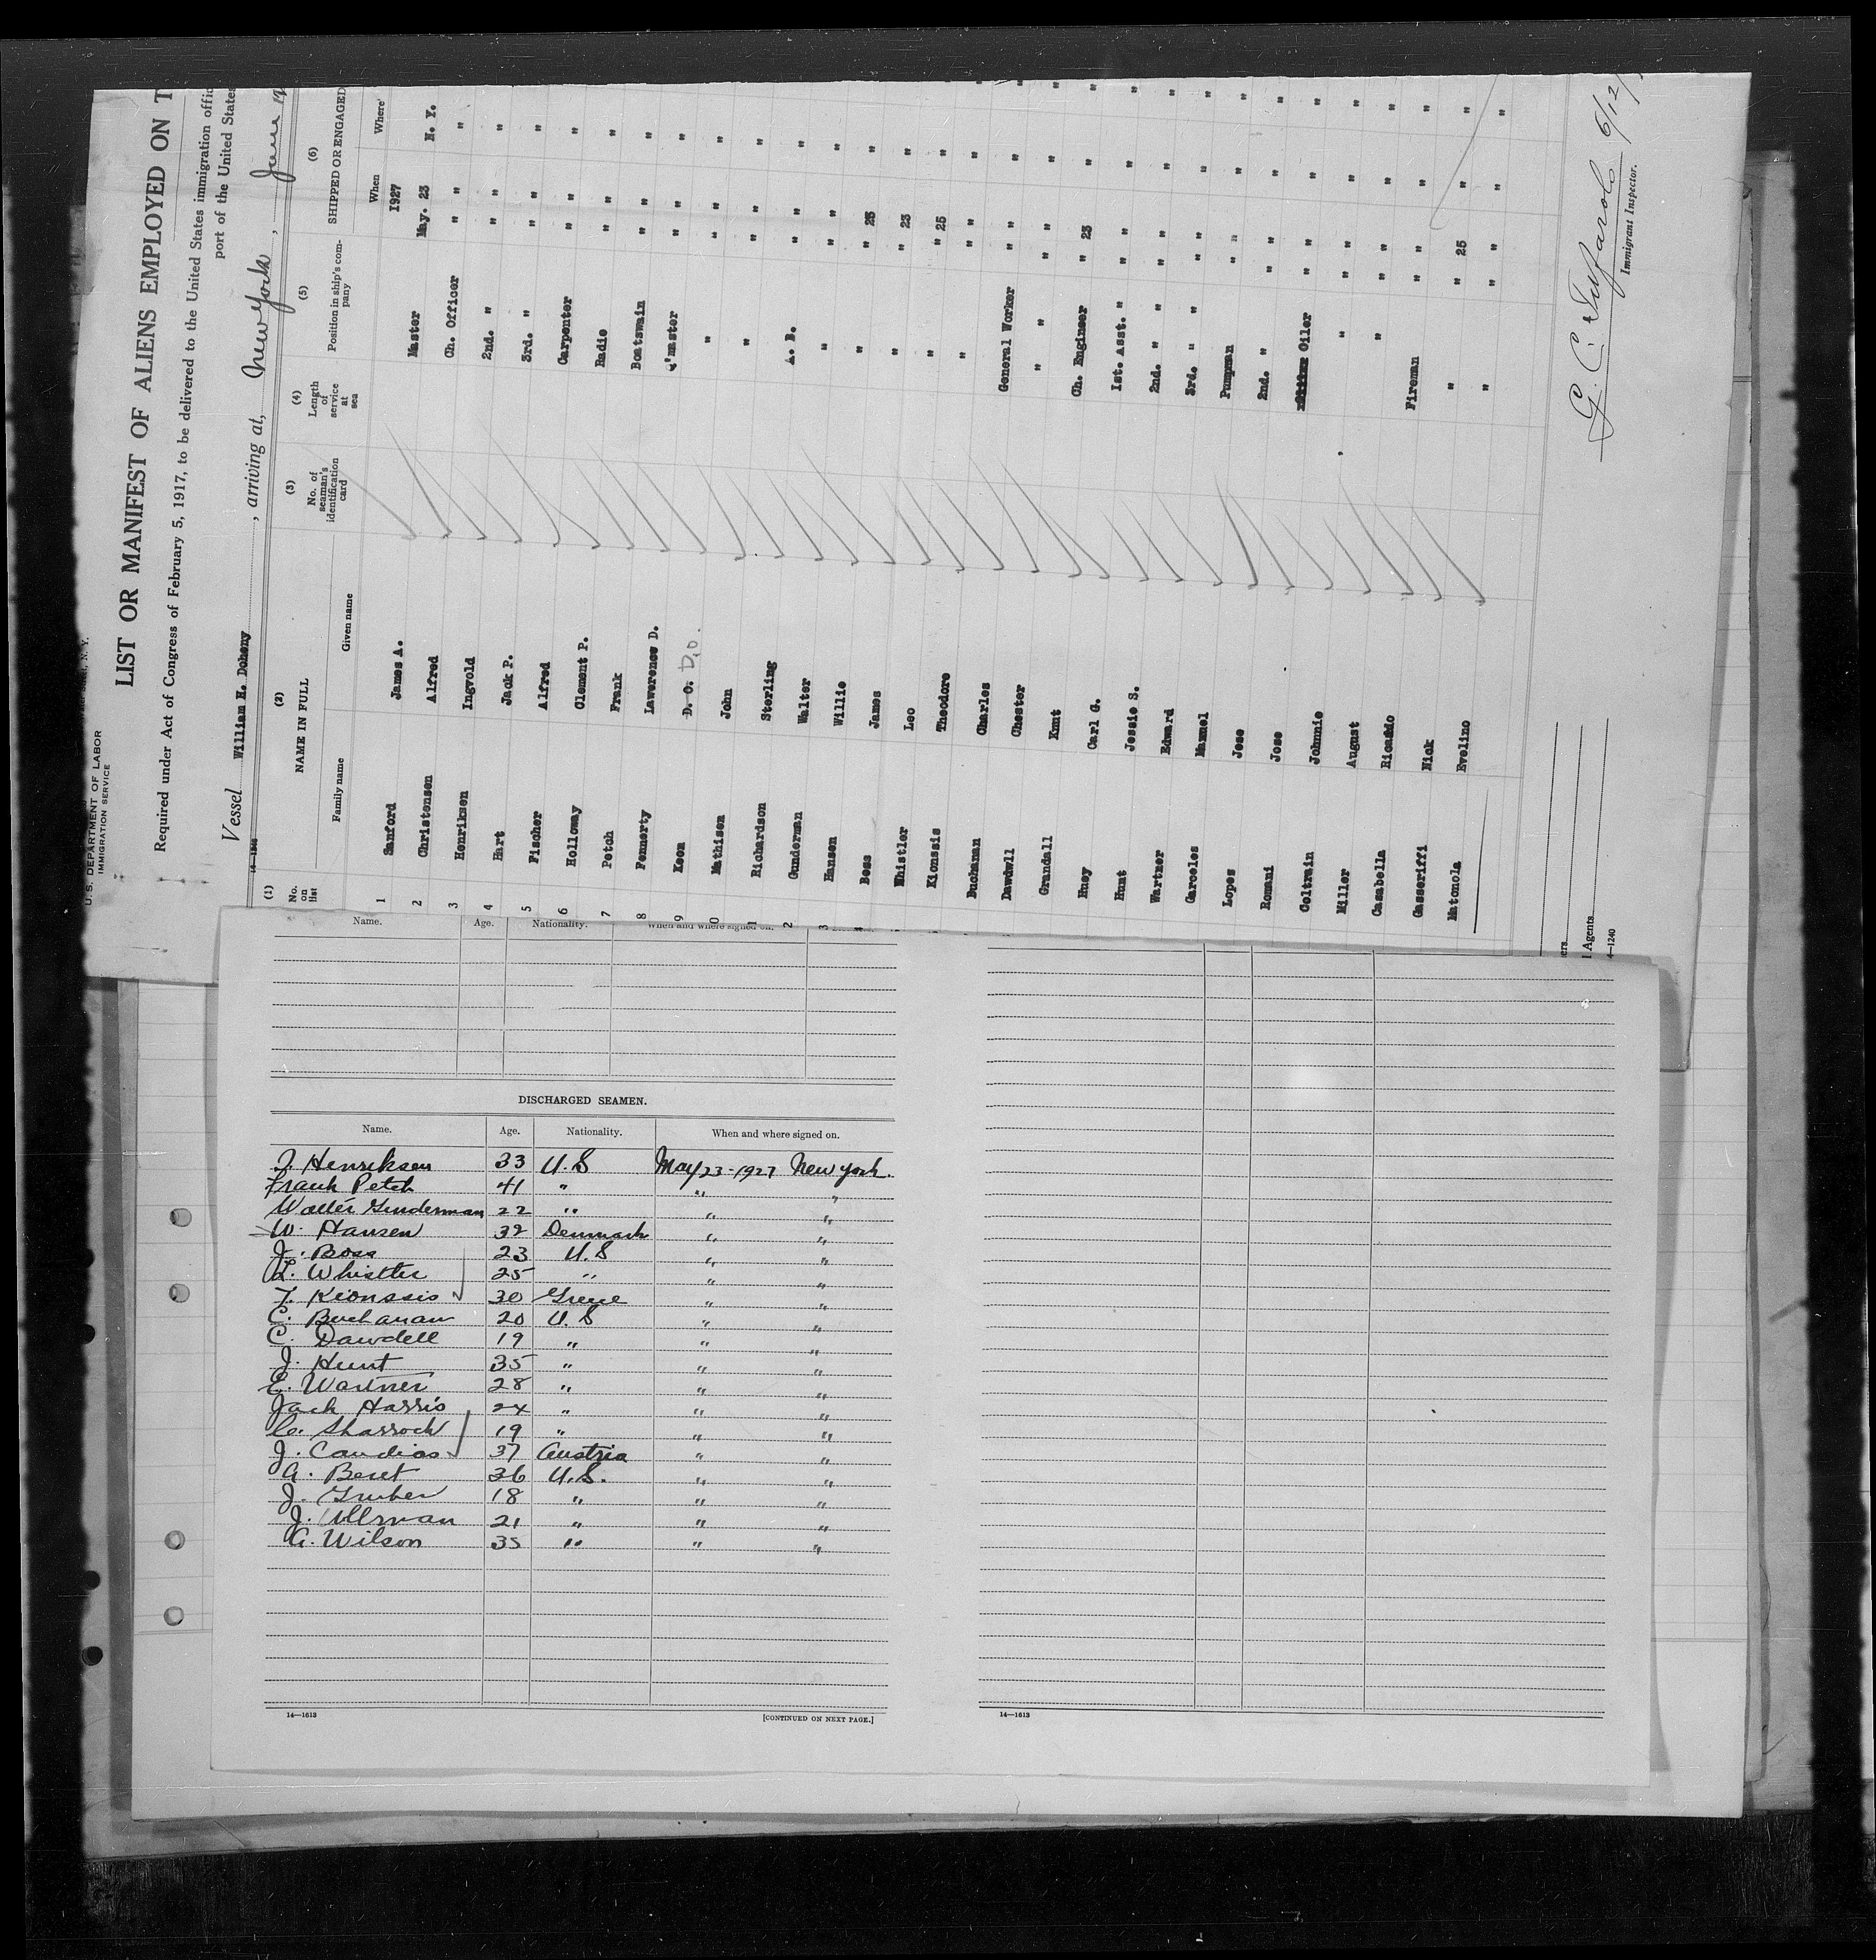 U.S. DEPARTMENT OF LABOR
IMMIGRATION SERVICE
LIST OR MANIFEST OF ALIENS EMPLOYED ON T
Required under Act of Congress of February 5, 1917, to be delivered to the United States immigration offic
port of the United States
Vessel William H. Doheny, arriving at, New York, June
14-1240
(1) (2) (3) (4) (5) (6)
No. on list NAME IN FULL No. of seaman's identification card Length of service at sea Position in ship's company SHIPPED OR ENGAGED
Family name Given name When Where
1927
1 Sanford James A. Master May. 23 N. Y.
2 Christensen Alfred Ch. Officer " " "
3 Henriksen Ingvold 2nd. " " " "
4 Hart Jack P. 3rd. " " " "
5 Fischer Alfred Carpenter " " "
6 Holloway Clement P. Radio " " "
7 Petch Frank Boatswain " " "
8 Fennerty Lawerence D. Q'master " " "
9 Keon D. O. D.O. " " " "
10 Mathisen John " " " "
1 Richardson Sterling A. B. " " "
2 Gunderman Walter " " " "
3 Hansen Willie " " 23 "
4 Boss James " " 23 "
Whistler Leo " " 25 "
Kionssis Theodore " " " "
Buchanan Charles General Worker " " "
Dawdwll Chester " " " " "
Grandall Knut Ch. Engineer " 23 "
Huey Carl G. 1st. Asst. " " " "
Hunt Jessie S. 2nd. " " " " "
Wartner Edward 3rd. " " " " "
Garceles Manuel Pumpman " " "
Lopes Jose 2nd. " " " "
Romani Jose Oiler " " "
Coltrain Johnnie " " " "
Miller August " " " "
Casabella Ricardo Fireman " " "
Gasseriffi Nick " " 25 "
Matonola Evelino " " " "
G. C.
6/12/
Immigrant Inspector.
ers
l Agents
4-1240
Name. Age. Nationality. When and where signed on.
DISCHARGED SEAMEN.
Name. Age. Nationality. When and where signed on.
I. Henriksen 33 U.S May 23-1927 New York.
Frank Petch 41 " " "
Walter Gunderman 22 " " "
W. Hansen 32 Denmark " "
J. Boss 23 U.S " "
L. Whistler 25 " " "
T. Kionssis 30 Greece " "
C. Buchanan 20 U.S " "
C. Dawdell 19 " " "
J. Hunt 35 " " "
E. Wartner 28 " " "
Jack Harris 24 " " "
C. Sharrock 19 " " "
J. Candias 37 Austria " "
A. Beret 36 U.S. " "
J. Gruber 18 " " "
J. Ullman 21 " " "
A. Wilson 35 " " "
14—1613
[CONTINUED ON NEXT PAGE.]
14—1613